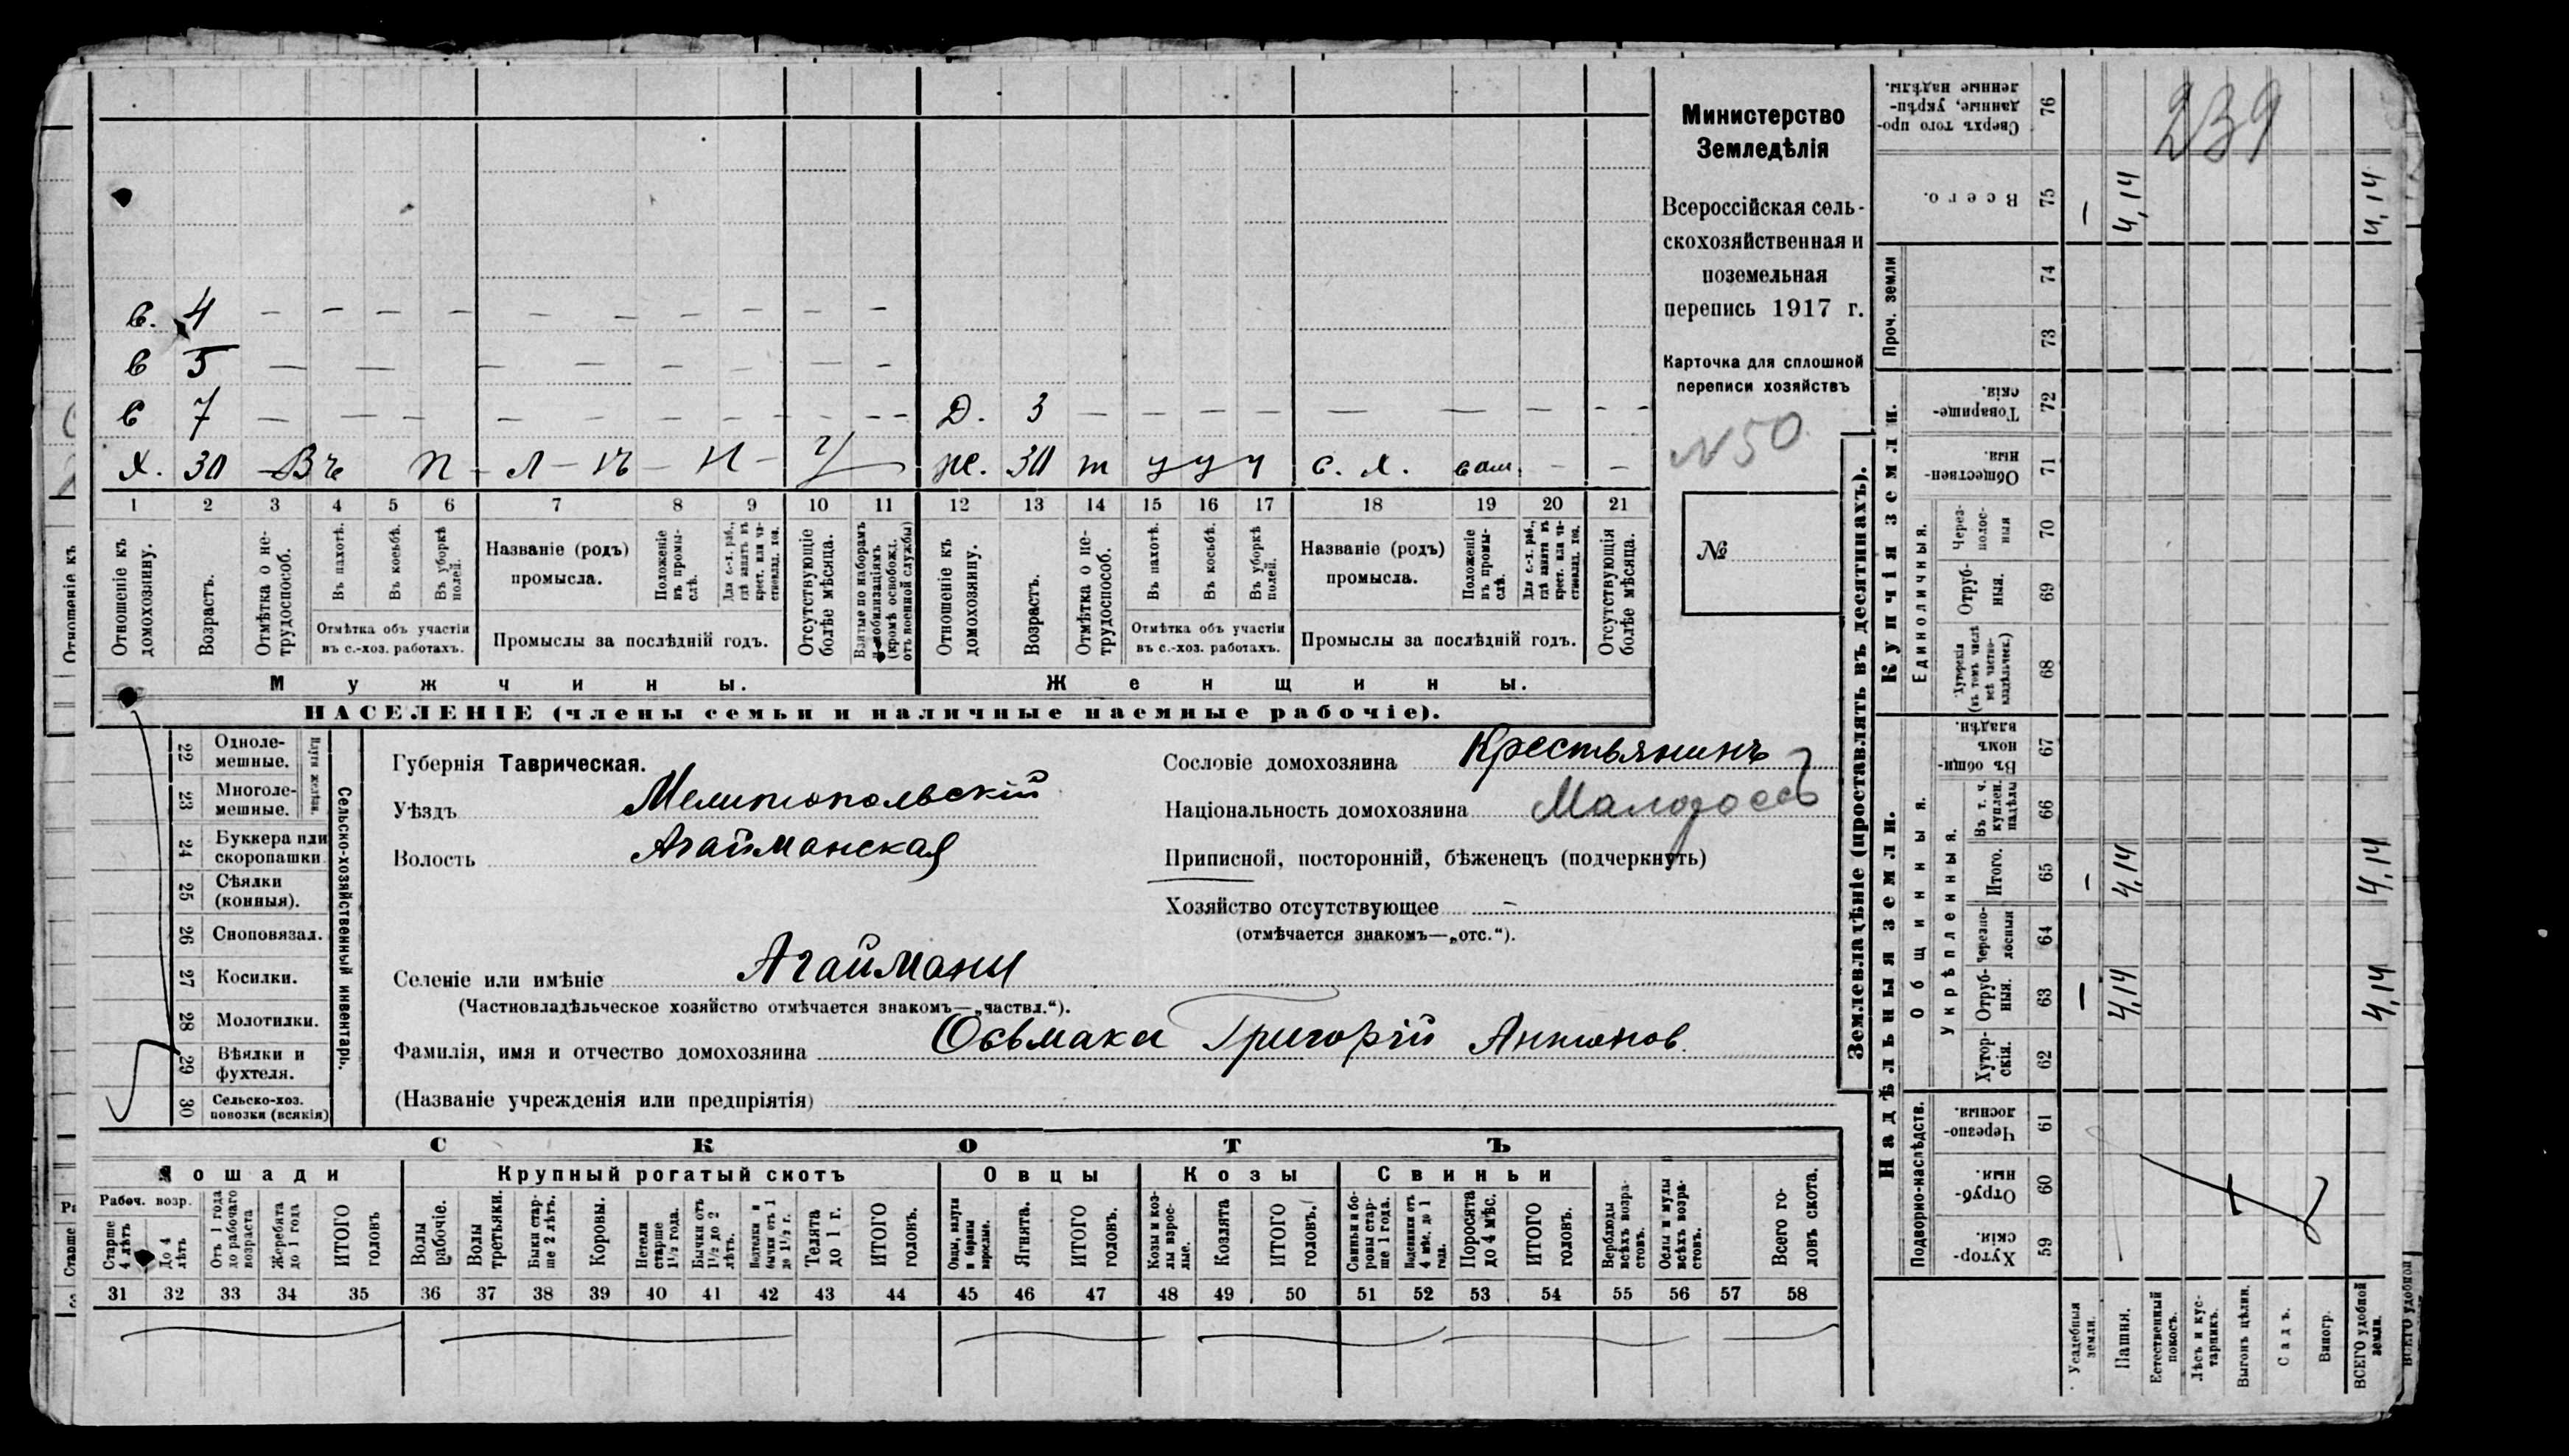 в. 4 — — — — — — — — —
в 5 — — — — — — —
в 7 — — — — — — — — — Д. 3 — — — — — — — — —
х. 30 ж. 30 т у у ч с. х. сам. — —
1 2 3 4 5 6 7 8 9 10 11 12 13 14 15 16 17 18 19 20 21
Отношеніе къ домохозяину.
Возрастъ.
Отмѣтка о не-трудоспособ.
Въ пахотѣ.
Въ косьбѣ.
Въ уборкѣ полей.
Отмѣтка объ участіи
въ с.-хоз. работахъ.
Названіе (родъ)
промысла.
Положеніе въ промы-слѣ.
Для с.-х. раб., гдѣ занятъ въ крест. или ча-стновлад. хоз.
Промыслы за послѣдній годъ.
Отсутствующіе болѣе мѣсяца.
Взятые по наборамъ и мобилизаціямъ (кромѣ освобожд. отъ военной службы)
Отношеніе къ домохозяину.
Возрастъ.
Отмѣтка о не-трудоспособ.
Въ пахотѣ.
Въ косьбѣ.
Въ уборкѣ полей.
Отмѣтка объ участіи
въ с.-хоз. работахъ.
Названіе (родъ)
промысла.
Положеніе въ промы-слѣ.
Для с.-х. раб., гдѣ занятъ въ крест. или ча-стновлад. хоз.
Промыслы за послѣдній годъ.
Отсутствующія болѣе мѣсяца.
Мужчины. Женщины.
НАСЕЛЕНІЕ (члены семьи и наличные наемные рабочіе).
Министерство
Земледѣлія
Всероссійская сель-
скохозяйственная и
поземельная
перепись 1917 г.
Карточка для сплошной
переписи хозяйствъ
N50
№
22 Одноле-мешные.
23 Многоле-мешные.
24 Буккера или скоропашки.
25 Сѣялки (конныя).
26 Сноповязал.
27 Косилки.
28 Молотилки.
29 Вѣялки и фухтеля.
30 Сельско-хоз. повозки (всякія)
Сельско-хозяйственный инвентарь.
Губернія Таврическая.
Уѣздъ Мелитопольскій
Волость Агайманская
Сословіе домохозяина Крестьянинъ
Національность домохозяина Малороссъ
Приписной, посторонній, бѣженецъ (подчеркнуть)
Хозяйство отсутствующее —
(отмѣчается знакомъ—„отс.“).
Селеніе или имѣніе Агайманы
(Частновладѣльческое хозяйство отмѣчается знакомъ—„частвл.“).
Фамилія, имя и отчество домохозяина Осьмака Григорій Антонов.
(Названіе учрежденія или предпріятія)
СКОТЪ
Лошади Крупный рогатый скотъ Овцы Козы Свиньи
Рабоч. возр.
Старше 4 лѣтъ
До 4 лѣтъ
Отъ 1 года до рабочаго возраста
Жеребята до 1 года
ИТОГО головъ
Волы рабочіе.
Волы третьяки.
Быки стар-ше 2 лѣтъ.
Коровы.
Нетели старше 1½ года.
Бычки отъ 1½ до 2 лѣтъ.
Телята до 1 г.
ИТОГО головъ.
Ягнята.
ИТОГО головъ.
Козы и коз-лы взрос-лые.
Козлята
ИТОГО головъ.
Свиньи и бо-ровы стар-ше 1 года.
Подсвинки отъ 4 мѣс. до 1 года.
Поросята до 4 мѣс.
ИТОГО головъ.
Верблюды всѣхъ возра-стовъ.
Ослы и мулы всѣхъ возра-стовъ.
Всего го-ловъ скота.
31 32 33 34 35 36 37 38 39 40 41 42 43 44 45 46 47 48 49 50 51 52 53 54 55 56 57 58
Землевладѣніе (проставлять въ десятинахъ).
Надѣльныя земли. Купчія земли.
Подворно-наслѣдств.
Общинныя.
Укрѣпленныя.
Единоличныя.
Проч. земли
Хутор-скія. 59
Отруб-ныя. 60
Черезпо-лосныя. 61
Хутор-скія. 62
Отруб-ныя. 63 — 4,14 4,14
Черезпо-лосныя 64
Итого. 65 — 4,14 4,14
Въ т. ч. куплен. надѣлы 66
Въ общи-номъ владѣн. 67
Хуторскія (въ томъ числѣ всѣ частно-владѣльческ.) 68
Отруб-ныя. 69
Через-полос-ныя 70
Обществен-ныя. 71
Товарище-скія. 72
73
74
Всего. 75 — 4,14 4,14
Сверхъ того про-данные, укрѣп-ленные надѣлы. 76
239
Усадебныя земли.
Пашня.
Естественный покосъ.
Лѣсъ и кус-тарникъ.
Выгонъ цѣлин.
Садъ.
Виногр.
ВСЕГО удобной земли.